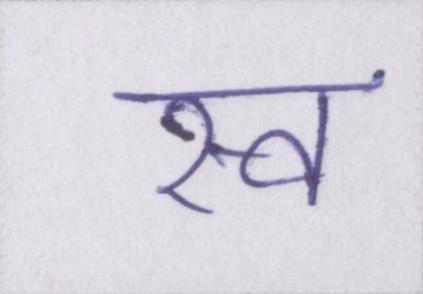 स्व